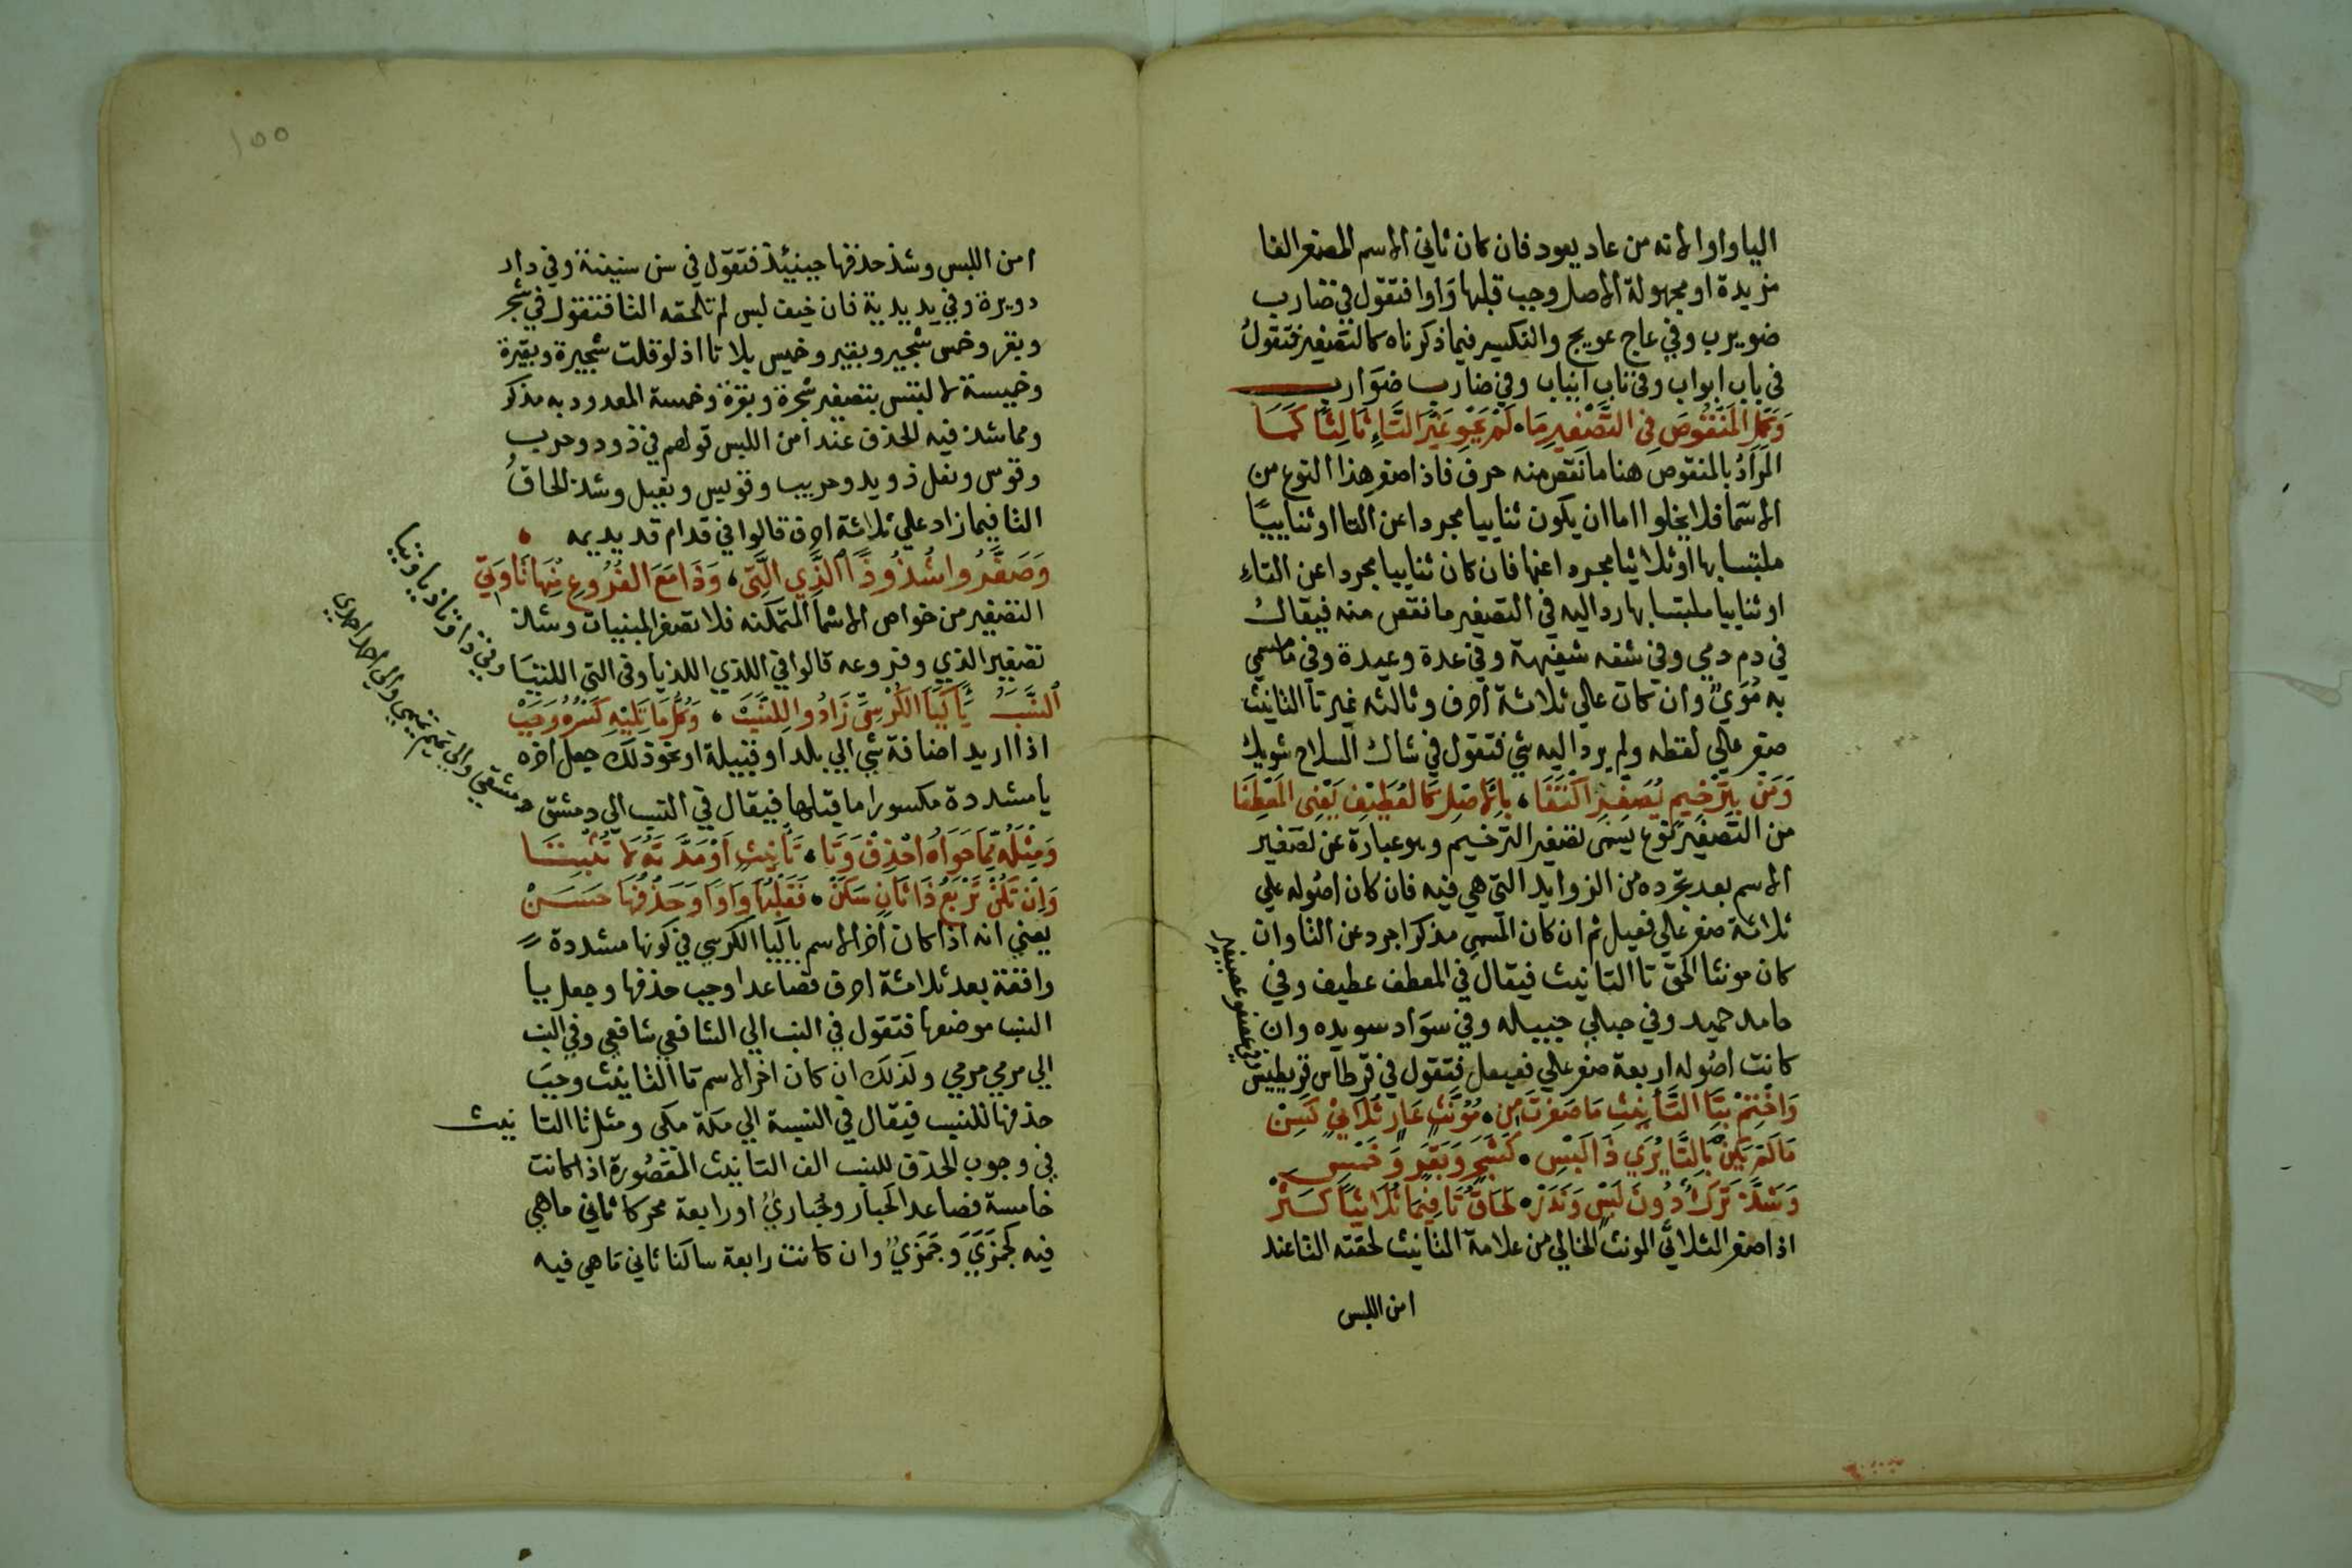 اليا واوا لانه من عاد يعود فان كان ثاني الاسم المصغر الفا
مزيدة او مجهولة الاصل وجب قلبها وَاوا فتقول في ضارب
ضويرب وفي عاج عويج والتكسير فيما ذكرناه كالتصغير فتقولُ
في باب ابواب وفي ناب انياب وفي ضارب ضَوَارب
وَكَمِّلِ المَنْقُوصَ فِي التَّصْغِيرِ مَا، لَمْ يَحْوِ غَيْرَ التَّاءِ ثَالِثًا كَمَا
المرَادُ بالمنقوصِ هنا ما نقص منه حرف فاذا صغر هذا النوع من
الاسما فلا يخلوا اما ان يكون ثناييا مجردا عن التا او ثناييًا
ملتبسا بها او ثلاثيا مجردا عنها فان كان ثناييا مجردا عن التاءِ
او ثناييا ملتبسا بها رد اليه في التصغير ما نقص منه فيقال
في دم دمي وفي شفه شفيهة وفي عدة وعيدة وفي ما مسمي
به مُوَيٌّ وان كان علي ثلاثة احرف وثالثه غير تا التانيث
صغر علي لفظه ولم يرد اليه شي فتقول في شاك السلاح شويك
وَمَنْ بِتَرْخِيمٍ يُصَغِّرُ اكْتَفَا، بِالاصْلِ كَالعُطَيْفِ يَعْنِى المعْطَفَا
من التصغير نوع يسمى تصغير الترخيم وهو عبارة عن تصغير
الاسم بعد تجرده من الزوايد التي هي فيه فان كان اصُوله علي
ثلاثة صغر علي فعيل ثم ان كان المسمي مذكرا جرد عن التا وان
كان مونثا الحق تا التانيث فيقال في المعطف عطيف وفي
حامد حميد وفي حبلي حبيله وفي سوَاد سويده وان
كانت اصُوله اربعة صغر علي فعيعل فتقول في قرطاس قريطيس
وفي عصفور عصيفير
وَاخْتِمْ بِتَا التَّأنِيثِ مَا صَغَّرْتَ مِنْ، مُؤَنَّثٍ عَارٍ ثُلَاثِيٍّ كَسِنْ
مَا لَمْ يَكُنْ بِالتَّا يُرَي ذَا لَبْسِ، كَشَجَرٍ وَبَقَرٍ وَخَمْسِ
وَشَذَّ تَرْكٌ دُونَ لَبْسٍ وَنَدَرْ، لَحَاقُ تَا فِيمَا ثُلَاثِيًّا كَثَرْ
اذا صغر الثلاثي المونث الخالي من علامة التانيث لحقته التا عند
امن اللبس
١٥٥
امن اللبس وشذ حذفها حينيذ فتقول في سن سنينة وفي دار
دويرة وفي يد يدية فان خيف لبس لم تلحقه التا فتقول في شجر
وبقر وخمس شجير وبقير وخميس بلا تا اذ لو قلت شجيرة وبقيرة
وخميسة لالتبس بتصغير شجرة وبقرة وخمسة المعدود به مذكر
ومما شذ فيه الحذف عند امن اللبس قولهم في ذود وحرب
وقوس ونعل ذويد وحريب وقويس ونعيل وشذ لحاقُ
التا فيما زاد علي ثلاثة احرف قالوا في قدام قديديمه
وَصَغَّرُوا شُذُوذًا الَّذِي الَّتِي، وَذَا مَعَ الفُرُوعِ مِنْهَا تَا وَتِي
التصغير من خواص الاسما المتمكنه فلا تصغر المبنيات وشذ
تصغير الذي وفروعه قالوا في اللذي اللذيا وفي التي اللتيا
وفي ذا وتا ذيا وتيا
النَّسَبُ يَاً كَيَا الكُرْسِيِّ زَادُوا لِلنَّسَبْ، وَكُلُّ مَا تَلِيْهِ كَسْرُهُ وَجَبْ
اذا اريد اضافة شي الي بلد او قبيلة او نحو ذلك جعل اخره
يا مشددة مكسورا ما قبلها فيقال في النسب الي دمشق دمشقي
والي تميم تميمي والي احمد احمدي
وَمِثْلَهُ مِمَّا حَوَاهُ احْذِفْ وَتَا، تَأنِيثٍ اَوْ مَدَّتَهُ لَا تُثْبِتَا
وَاِنْ تَكُنْ تَرْبَعُ ذَا ثَانٍ سَكَنْ، فَقَلْبُهَا وَاوًا وَحَذْفُهَا حَسَنْ
يعني انه اذا كان اخر الاسم يا كيا الكرسي في كونها مشددة
واقعة بعد ثلاثة احرف فصاعدا وجب حذفها وجعل يا
النسب موضعها فتقول في النسب الي الشافعي شافعي وفي النسب
الي مرمي مرمي وكذلك ان كان اخر الاسم تا التانيث وجبَ
حذفها للنسب فيقال في النسبة الي مكة مكي ومثل تا التانيث
في وجوب الحذف للنسب الف التانيث المقصُورة اذا كانت
خامسة فصاعدا كحبارَ وحُباريٌّ او رابعة محركا ثاني ما هي
فيه كجمَزَيَ وَجَمَزَيٌّ وان كانت رابعة ساكنا ثاني مَا هي فيه